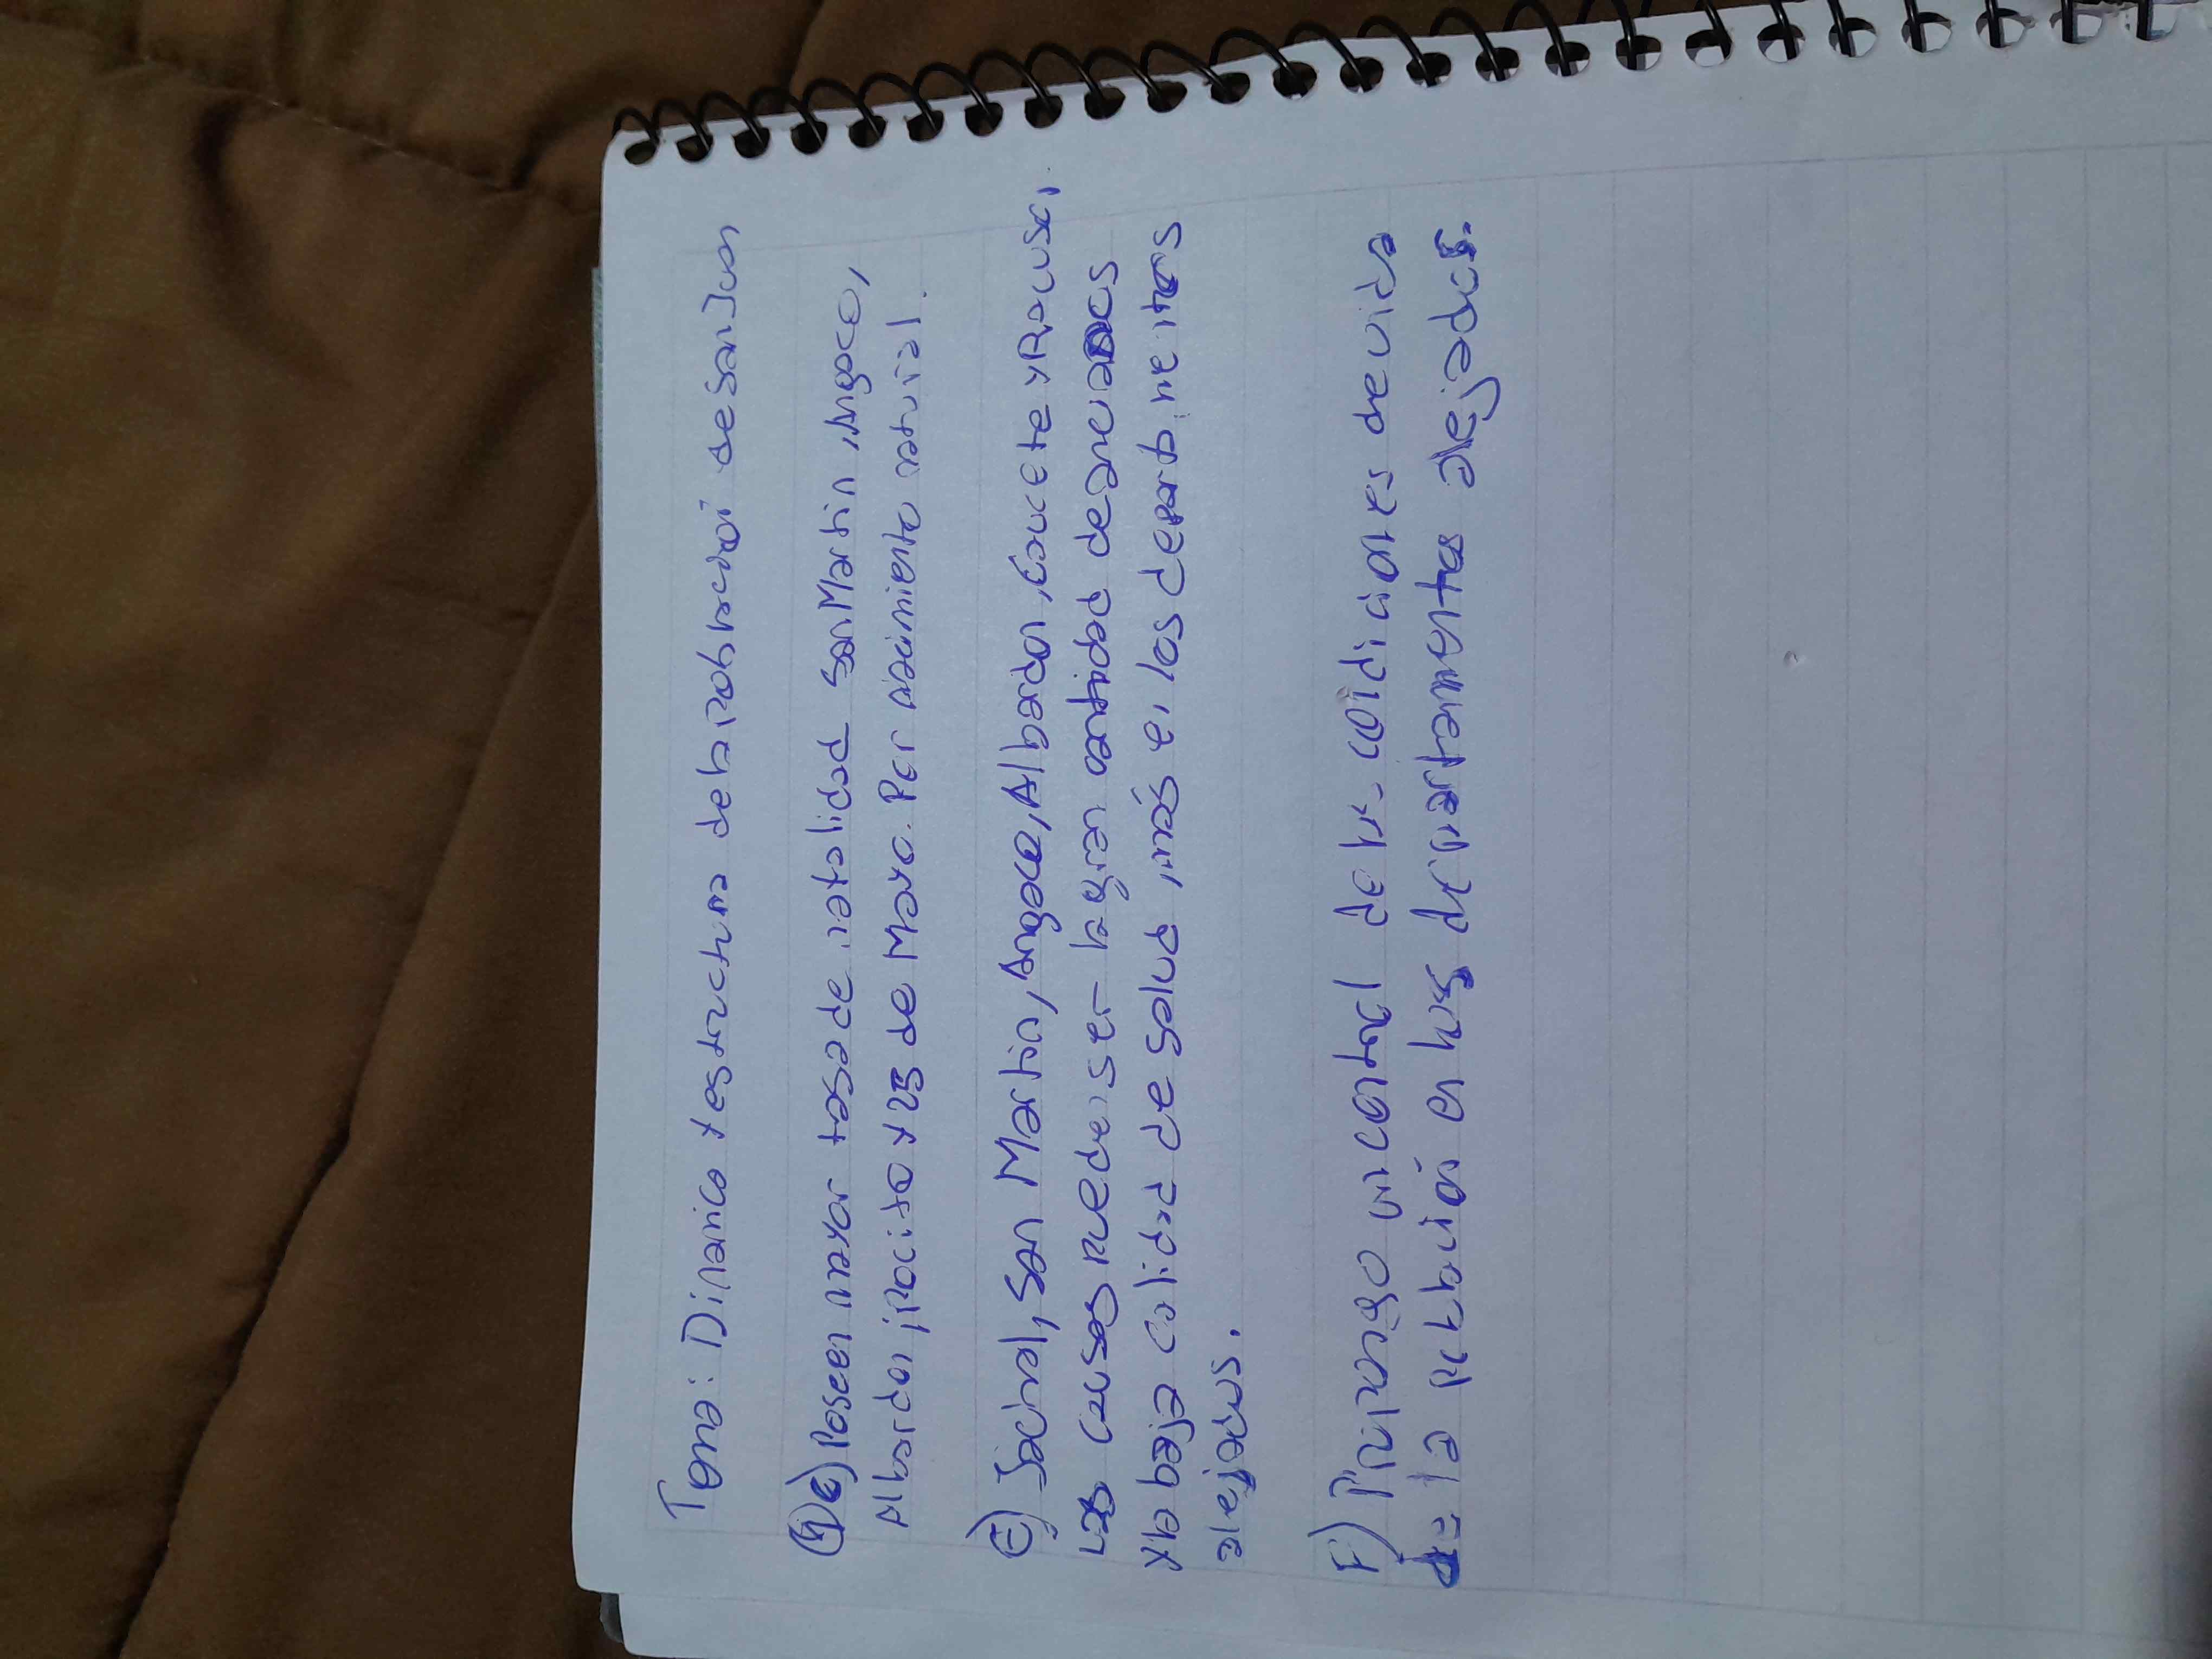 Tema: Dinamica y estructura de la poblacioń de San Juan
4) e) Poseen mayor tasa de natalidad San Martin, Angaco,
Albardon, Pocito y 25 de Mayo. Por nacimiento natural.
E) Jachal, San Martin, Angaco, Albardon, Caucete y Rawson,
Las causas pueden ser la gran cantidad de ancianos
y la baja calidad de salud, más en los departamentos
alejados.
F) Yo incorporaría mejor calidad de las condiciones de vida
de la población en los departamentos alejados.